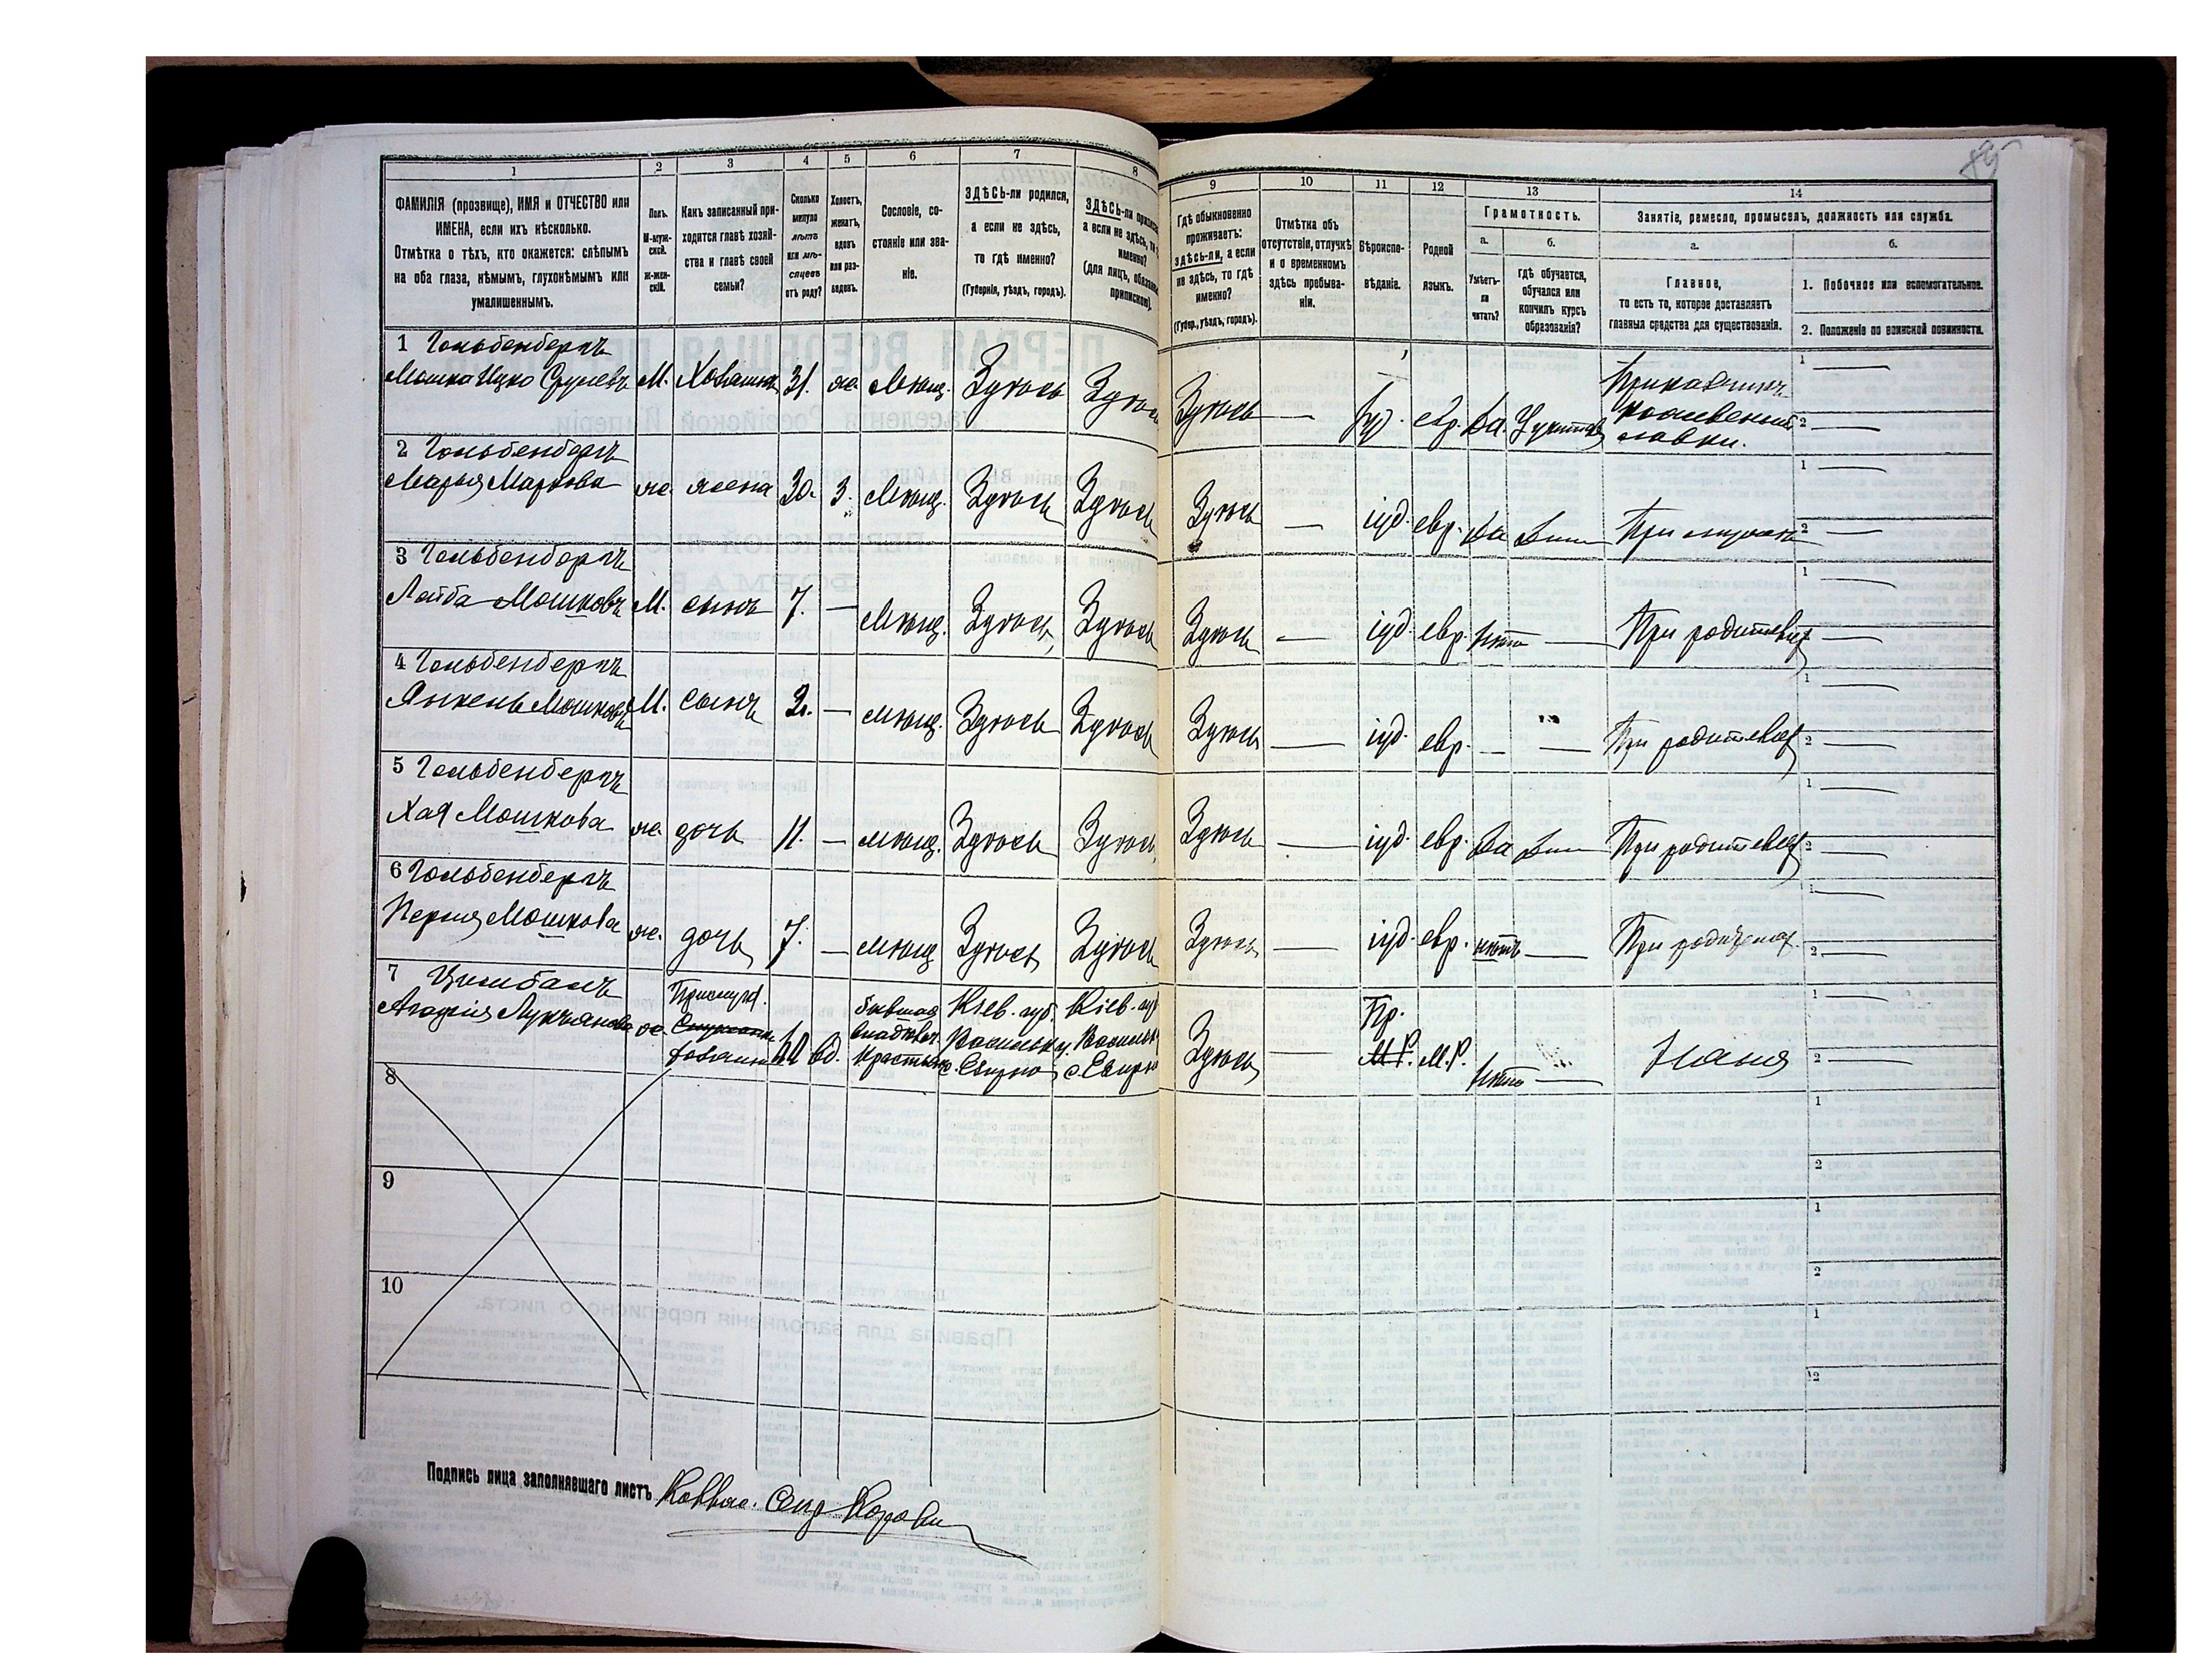 1 2 3 4 5 6 7 8
ФАМИЛІЯ (прозвище), ИМЯ и ОТЧЕСТВО или
ИМЕНА, если ихъ нѣсколько.
Отмѣтка о тѣхъ, кто окажется: слѣпымъ
на оба глаза, нѣмымъ, глухонѣмымъ или
умалишеннымъ.
Полъ.
М-муж-
ской.
Ж-жен-
скій.
Какъ записанный при-
ходится главѣ хозяй-
ства и главѣ своей
семьи?
Сколько
минуло
лѣтъ
или мѣ-
сяцевъ
отъ роду?
Холостъ,
женатъ,
вдовъ
или раз-
веденъ.
Сословіе, со-
стояніе или зва-
ніе.
ЗДѢСЬ-ли родился,
а если не здѣсь,
то гдѣ именно?
(Губернія, уѣздъ, городъ).
ЗДѢСЬ-ли
а если не здѣсь,
именно?
(для лицъ,
припискою).
1 Гольденбергъ
Мошка Ицко Сруліовъ М. Хозяинъ 31. ж. Мѣщ. Здѣсь Здѣсь
2 Гольденбергъ
Марья Маркова ж. жена 30. З. Мѣщ. Здѣсь Здѣсь
3 Гольденбергъ
Лейба Мошковъ М. сынъ 7. — Мѣщ. Здѣсь Здѣсь
4 Гольденбергъ
Янкель Мошковъ М. сынъ 2. — мѣщ. Здѣсь Здѣсь
5 Гольденбергъ
Хая Мошкова ж. дочь 11. — мѣщ. Здѣсь Здѣсь
6 Гольденбергъ
Перля Мошкова ж. дочь 7. — мѣщ Здѣсь Здѣсь
7 Цимбалъ
Агафія Лукьянова ж. Прислуга вд. бывшая Кіев. губ. Кіев. губ
8
9
10
Подпись лица заполнявшаго листъ
9 10 11 12 13 14
Гдѣ обыкновенно
проживаетъ:
здѣсь-ли, а если
не здѣсь, то гдѣ
именно?
(Губер., уѣздъ, городъ).
Отмѣтка объ
отсутствіи, отлучкѣ
и о временномъ
здѣсь пребыва-
ніи.
Вѣроиспо-
вѣданіе.
Родной
языкъ.
Грамотность.
а. б.
Умѣетъ-
ли
читать?
гдѣ обучается,
обучался или
кончилъ курсъ
образованія?
Занятіе, ремесло, промыселъ, должность или служба.
а. б.
Главное,
то есть то, которое доставляетъ
главныя средства для существованія.
1. Побочное или вспомогательное.
2. Положеніе по воинской повинности.
Здѣсь — іуд. евр. Да. Прикащикъ
лавки.
1 —
2 —
Здѣсь — іуд. евр. Да При мужѣ
1 —
2 —
Здѣсь — іуд. евр. нѣтъ — При родителяхъ
1 —
—
Здѣсь — іуд. евр. — — При родителяхъ
1 —
2 —
Здѣсь — іуд. евр. Да При родителяхъ
1 —
2 —
Здѣсь — іуд. евр. нѣтъ — При родителях.
1 —
2 —
Здѣсь — Пр.
М.Р. М.Р. нѣтъ — Няня
1 —
2 —
1
2
1
2
1
2